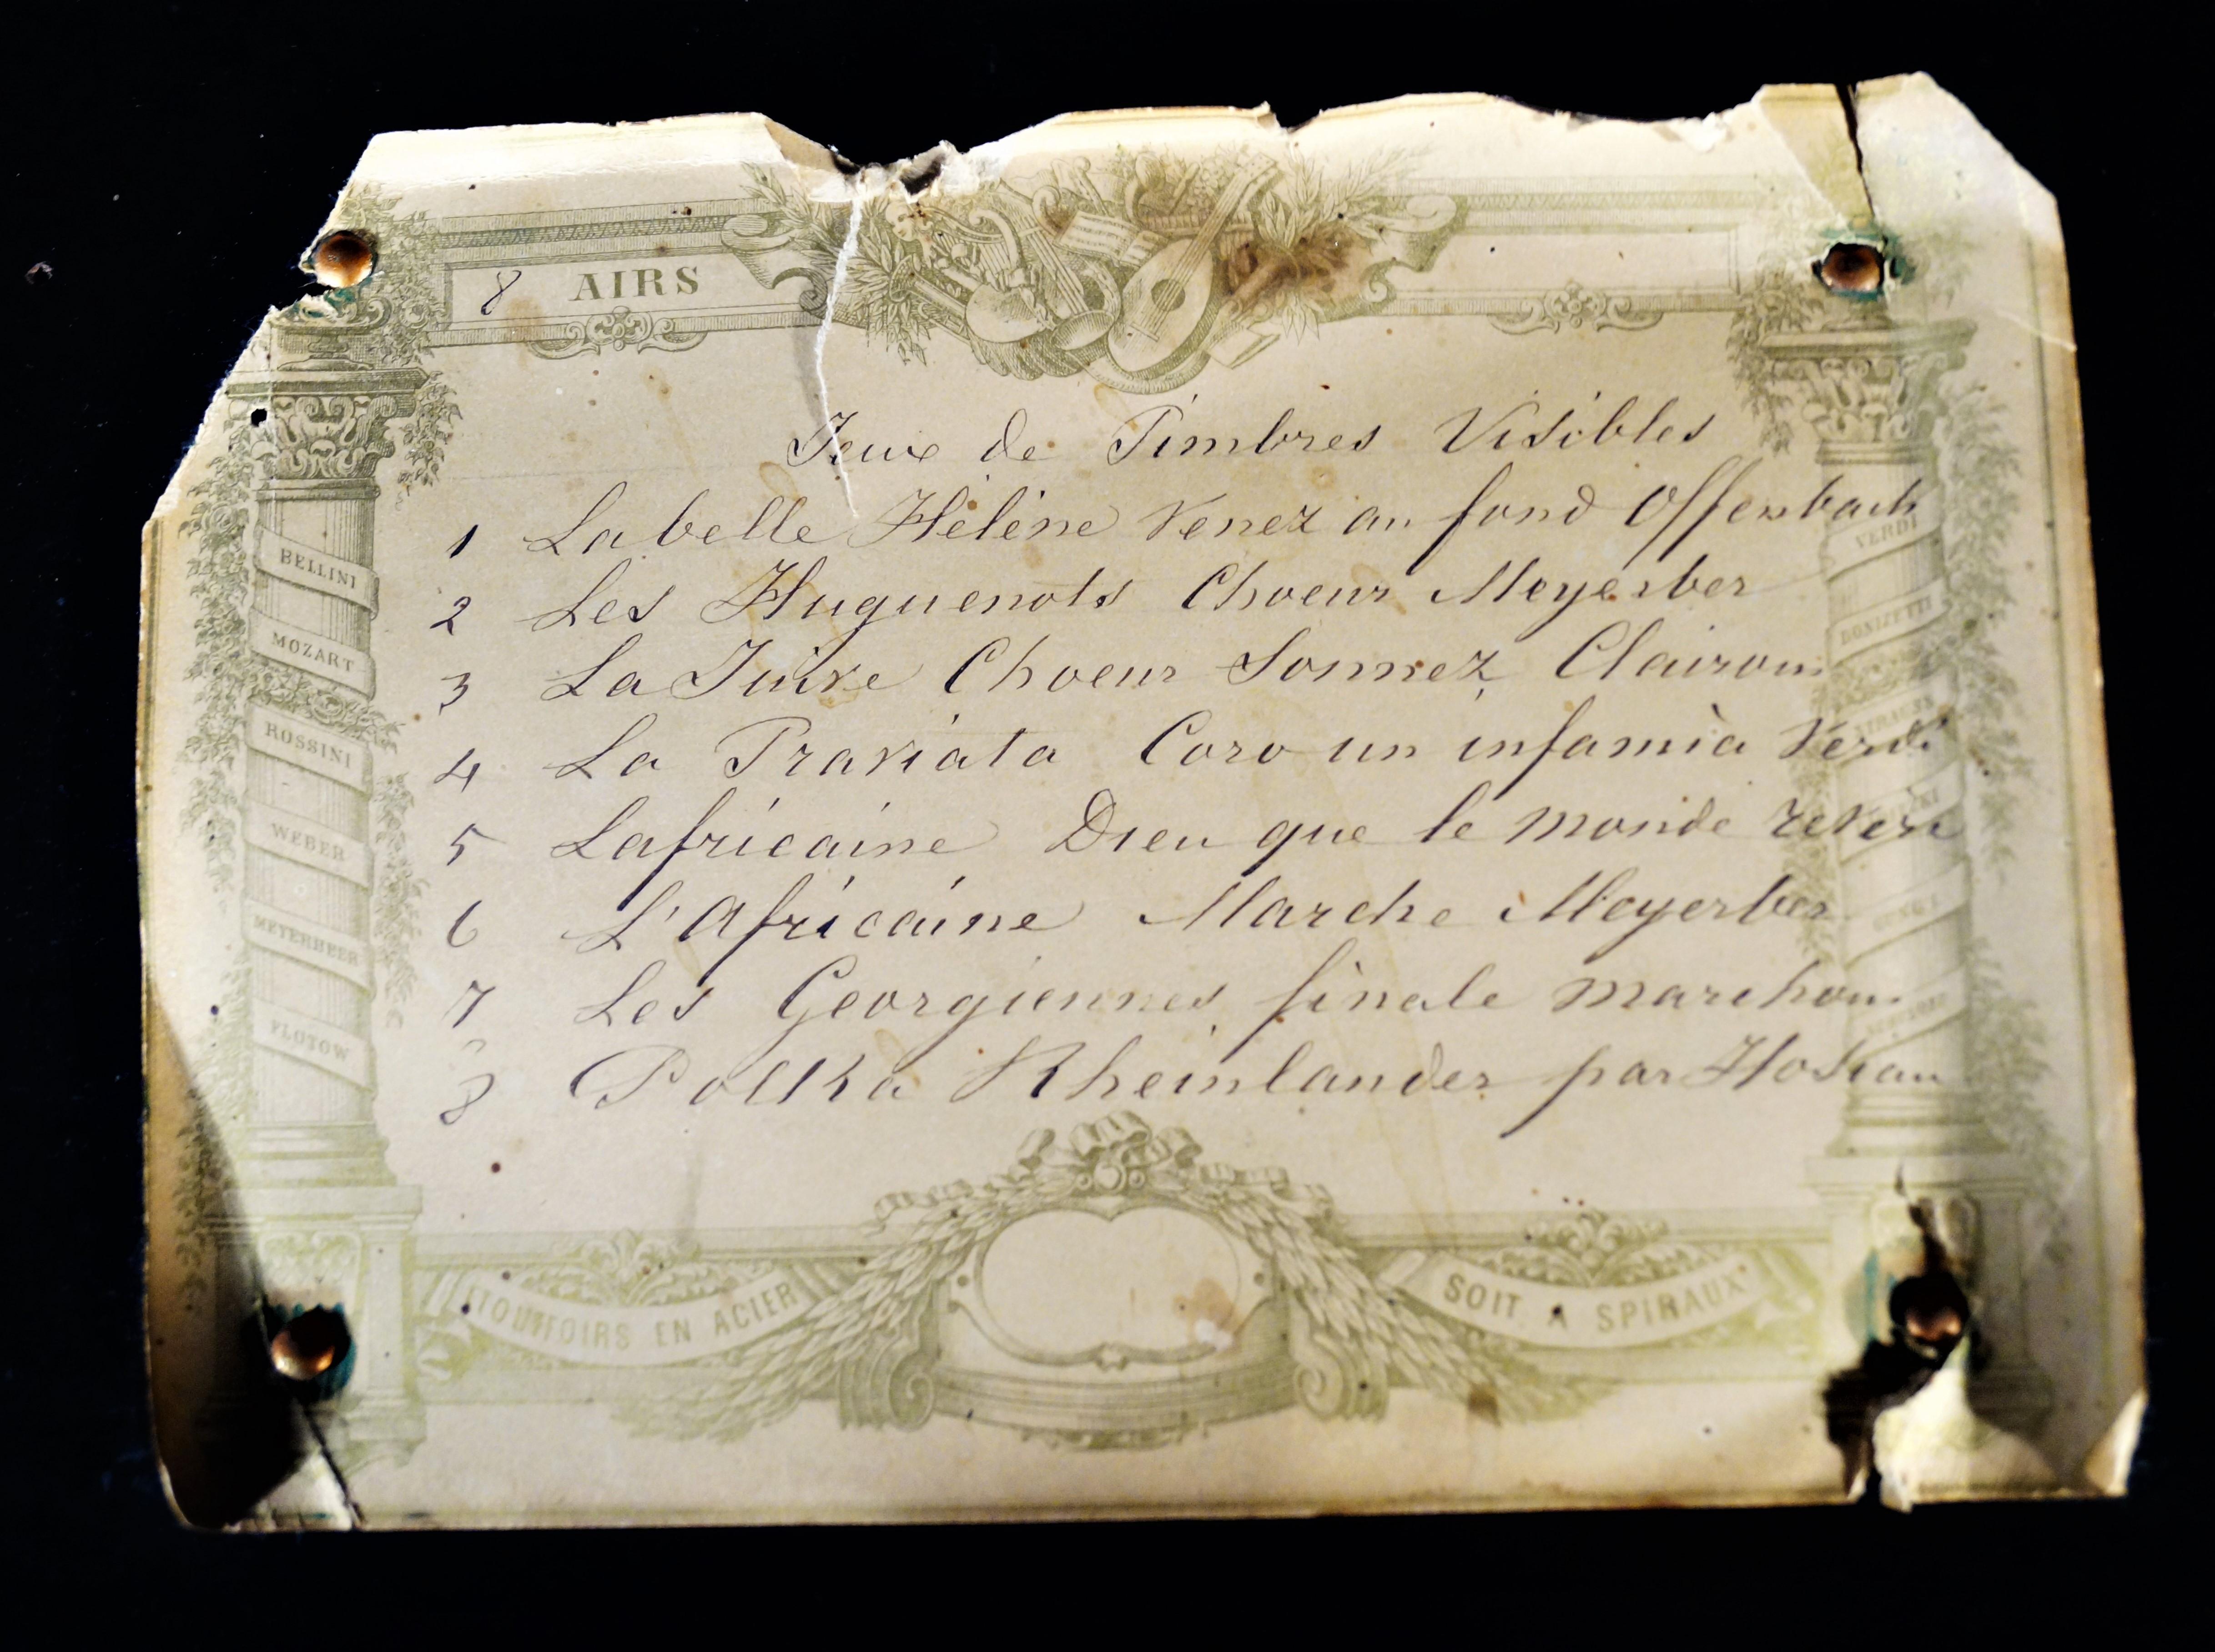 8 AIRS
Jeux de Timbres Visibles
1 La belle Hélène Venez au fond Offenbach
2 Les Huguenots Choeur Meyerber
3 La Juive Choeur Sonnez Clairons
4 La Traviata Coro un infamia Verdi
5 Lafricaine Dieu que le monde révère
6 L'Africaine Marche Meyerber
7 Les Georgiennes finale marchons
8 Polka Rheinlander par
BELLINI
MOZART
ROSSINI
WEBER
MEYERBEER
FLOTOW
VERDI
DONIZETTI
STRAUSS
ETOUFFOIRS EN ACIER
SOIT A SPIRAUX